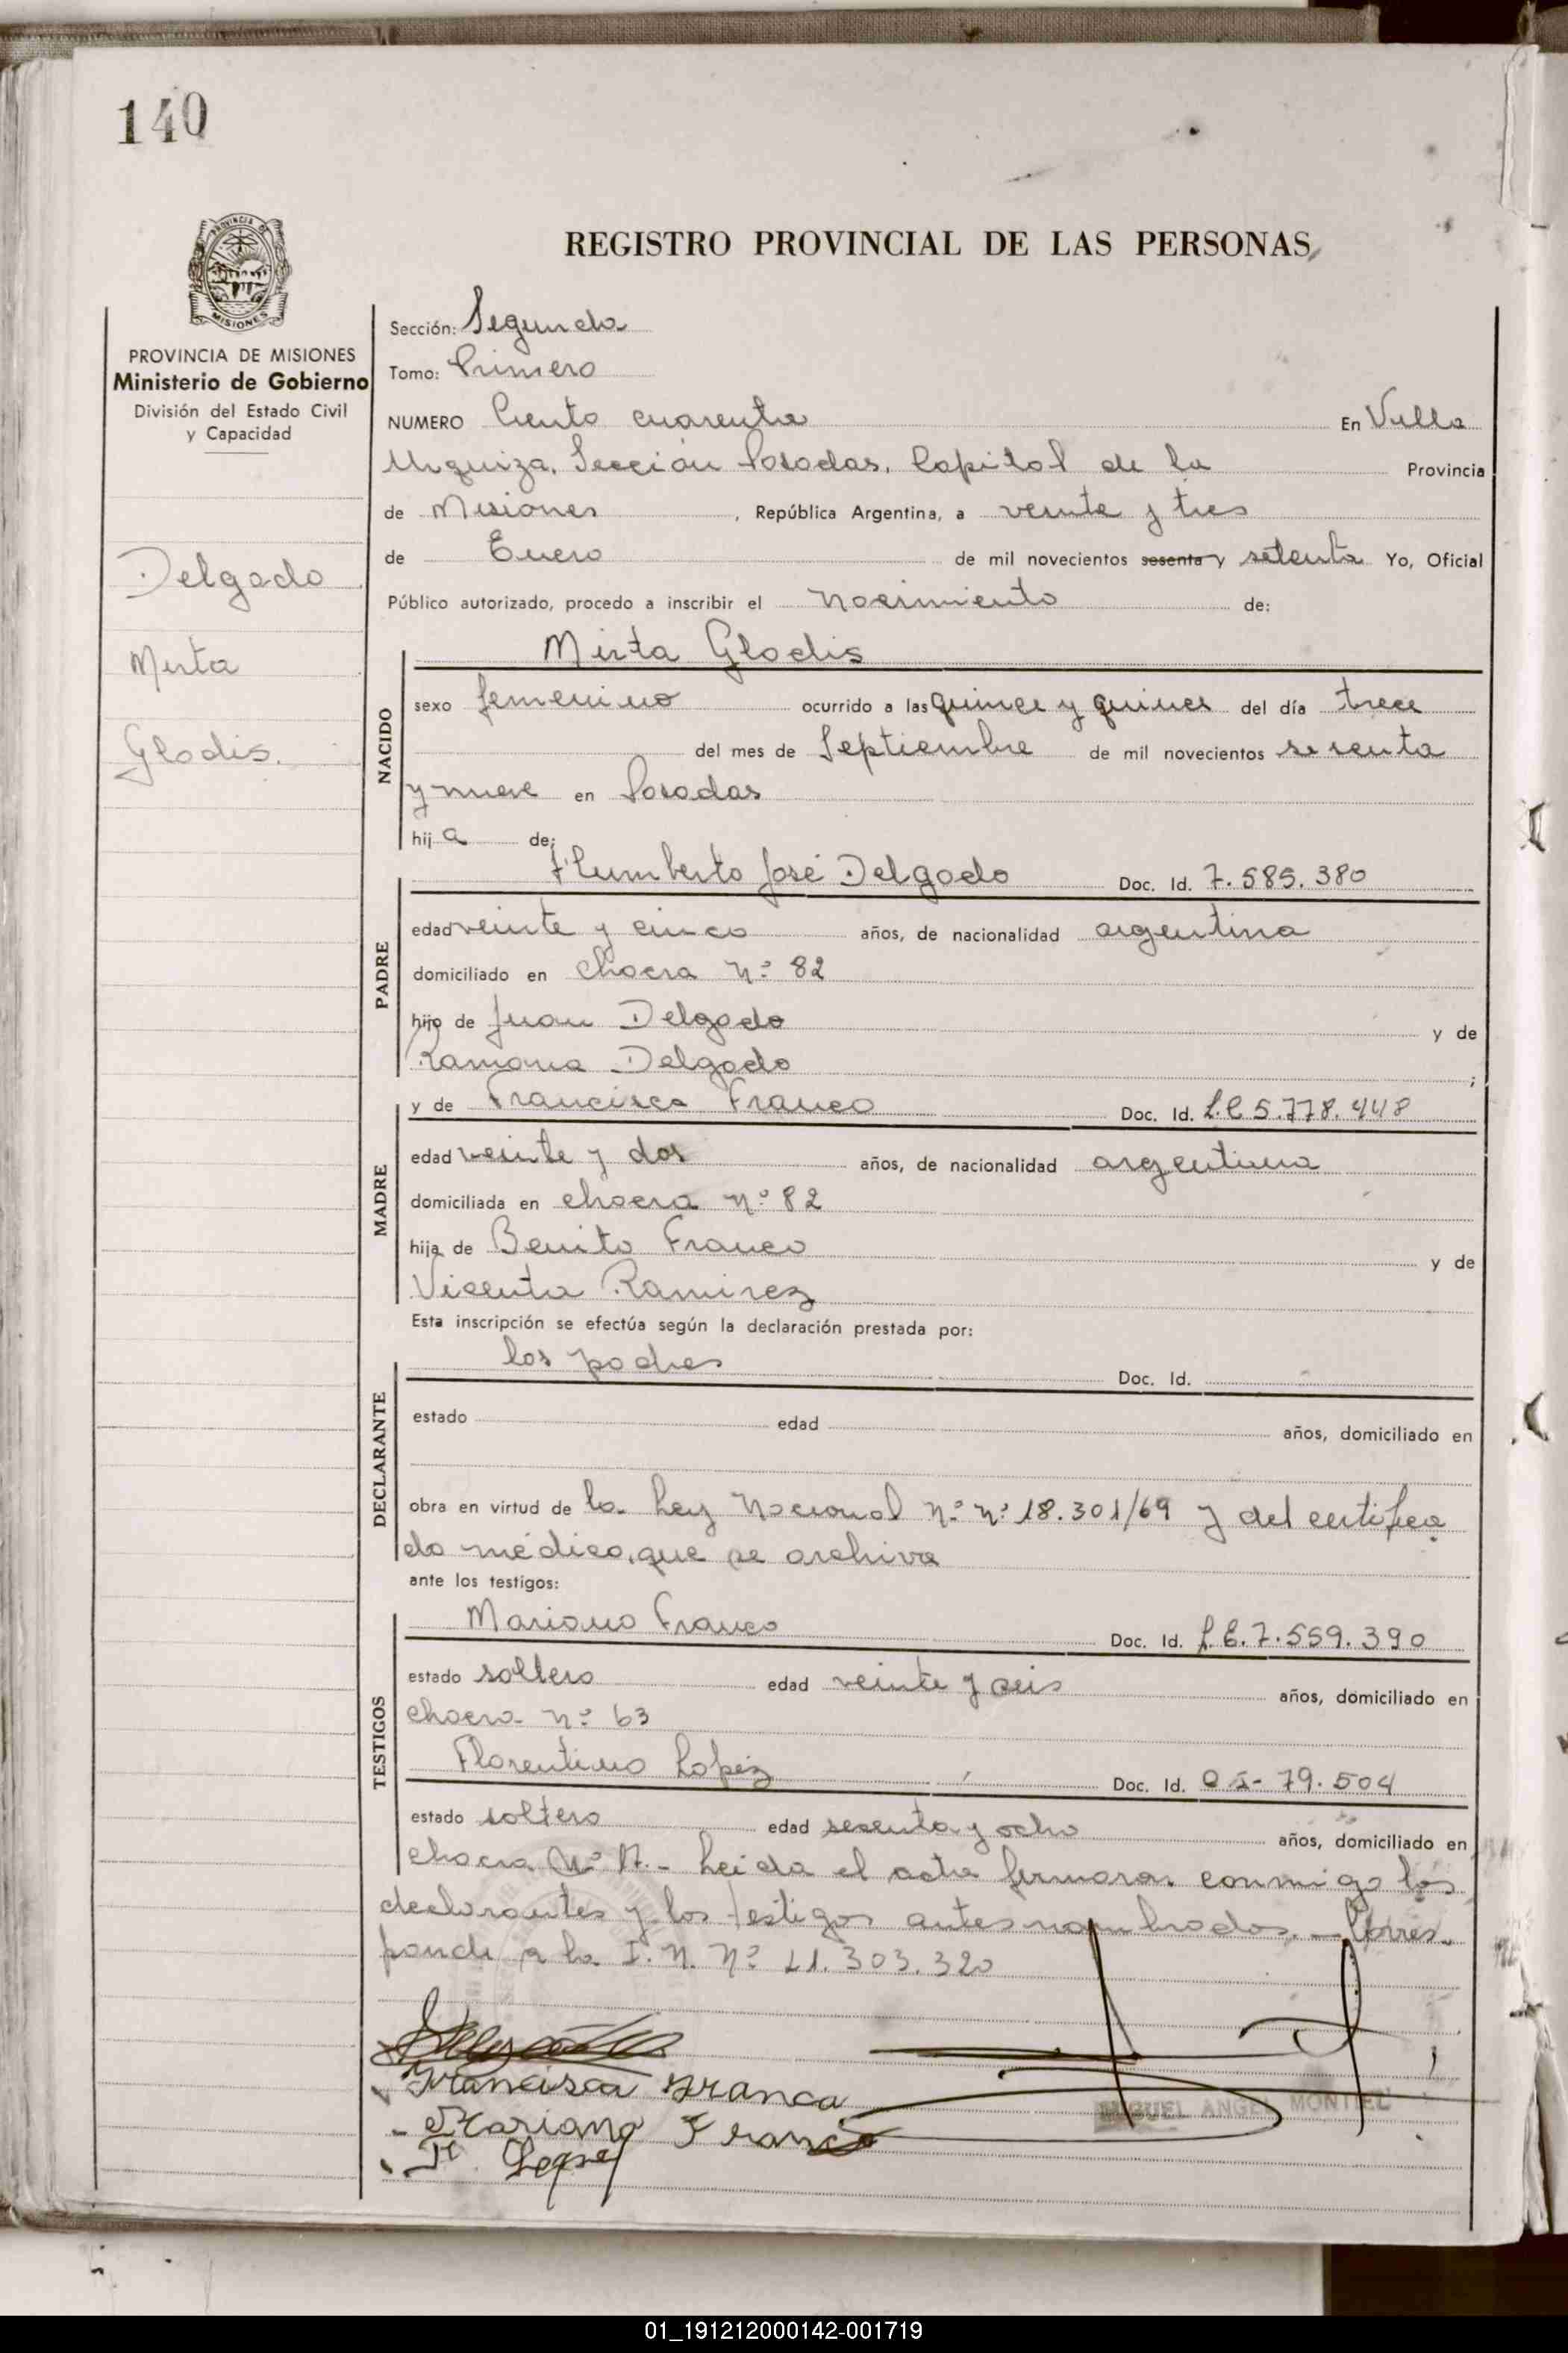 140
PROVINCIA DE
MISIONES
REGISTRO PROVINCIAL DE LAS PERSONAS
PROVINCIA DE MISIONES
Ministerio de Gobierno
División del Estado Civil
y Capacidad
Delgado
Mirta
Gladis.
Sección: Segunda
Tomo: Primero
NUMERO Ciento cuarenta En Villa
Urquiza, Sección Posadas, Capital de la Provincia
de Misiones, República Argentina, a veinte y tres
de Enero de mil novecientos sesenta y setenta Yo, Oficial
Público autorizado, procedo a inscribir el nacimiento de:
Mirta Gladis
NACIDO
sexo femenino ocurrido a las quince y quince del día trece
del mes de Septiembre de mil novecientos sesenta
y nueve en Posadas
hija de:
PADRE
Humberto José Delgado Doc. Id. 7.585.380
edad veinte y cinco años, de nacionalidad argentina
domiciliado en chacra nº 82
hijo de Juan Delgado y de
Ramona Delgado;
MADRE
y de Francisca Franco Doc. Id. L.C 5.778.448
edad veinte y dos años, de nacionalidad argentina
domiciliada en chacra nº 82
hija de Benito Franco y de
Vicenta Ramirez
Esta inscripción se efectúa según la declaración prestada por:
DECLARANTE
los padres Doc. Id.
estado edad años, domiciliado en
obra en virtud de la Ley Nacional nº nº 18.301/69 y del certifica
do médico, que se archiva
ante los testigos:
TESTIGOS
Mariano Franco Doc. Id. L.E. 7.559.390
estado soltero edad veinte y seis años, domiciliado en
chacra nº 63
Florentino Lopez Doc. Id. 79.504
estado soltero edad sesenta y ocho años, domiciliado en
chacra Nº Leida el acta firmaran conmigo los
declarantes y los testigos antes nombrados. — Corres-
ponde a la I. N. Nº 21.303.320
Francisca Franco
Mariano Franco
F. Lopez
MIGUEL ANGEL MONTIEL
01_191212000142-001719